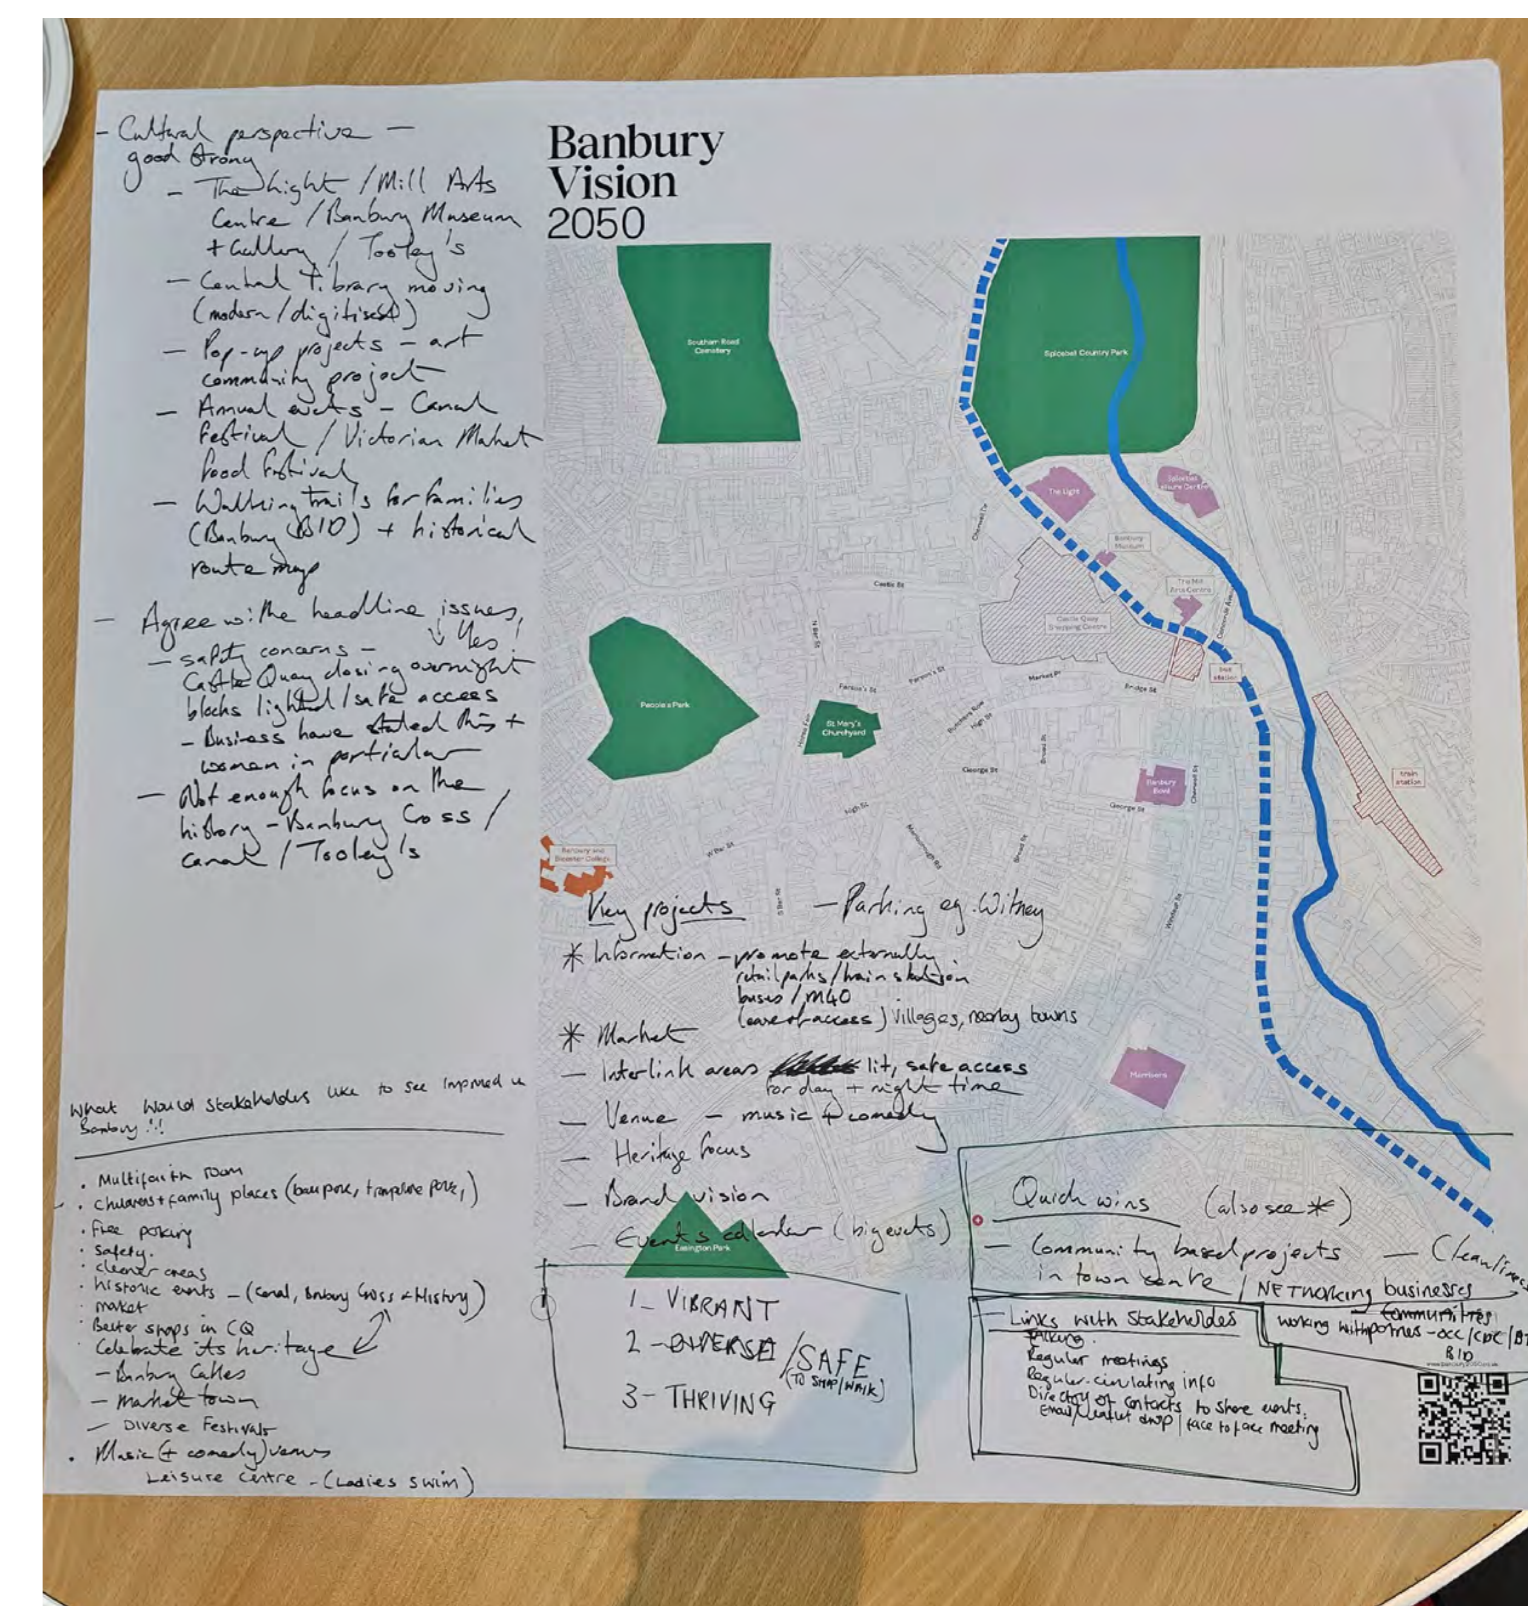 - Cultural perspective -
good strong
- The Light / Mill Arts
Centre / Banbury Museum
+ Gallery / Tooley's
- Central Library moving
(modern / digitised)
- Pop-up projects - art
community project
- Annual events - Canal
Festival / Victorian Market
food festival
- Walking trails for families
(Banbury BID) + historical
route map
- Agree with the headline issues,
Yes!
- safety concerns -
Castle Quay closing overnight
blocks lighted / safe access
- Business have stated this +
women in particular
- Not enough focus on the
history - Banbury Cross /
canal / Tooley's
What would stakeholders like to see improved in
Banbury !!!
. Multifaith room
. Childrens + family places (ball park, trampoline park,)
. Free parking
. Safety.
. cleaner areas
. historic events - (canal, Banbury Cross + History)
. market
. Better shops in CQ
. Celebrate its heritage
- Banbury Cakes
- market town
- Diverse Festivals
. Music (+ comedy) venues
Leisure Centre - (Ladies swim)
Banbury
Vision
2050
Southam Road
Cemetery
Spiceball Country Park
The Light
Spiceball
Leisure Centre
Banbury
Museum
The Mill
Arts Centre
Castle Quay
Shopping Centre
Concorde Ave
Castle St
N Bar St
bus
station
Parson's St
Parson's St
Market Pl
Bridge St
People's Park
St Mary's
Churchyard
Horse Fair
Butchers Row
High St
Broad St
George St
Banbury
Cherwell St
George St
train
station
High St
Marlborough Rd
Broad St
W Bar St
Banbury and
Bicester College
S Bar St
Windsor St
Morrisons
Easington Park
Key projects - Parking eg. Witney
* Information - promote externally
retail parks / train station
buses / M40
(ease of access) villages, nearby towns
* Market
- Interlink areas lit, safe access
for day + night time
- Venue - music + comedy
- Heritage focus
- Brand vision
- Events calendar (big events)
1_ VIBRANT
2 - DIVERSE / SAFE
(TO SHOP/WALK)
3 - THRIVING
Quick wins (also see *)
- Community based projects - Cleanliness
in town centre / NETWORKING businesses
communities
working with partners - OCC / CDC /
BID
- Links with stakeholders
Talking.
Regular meetings
Regular circulating info
Directory of contacts to share events.
Email / leaflet drop / face to face meeting